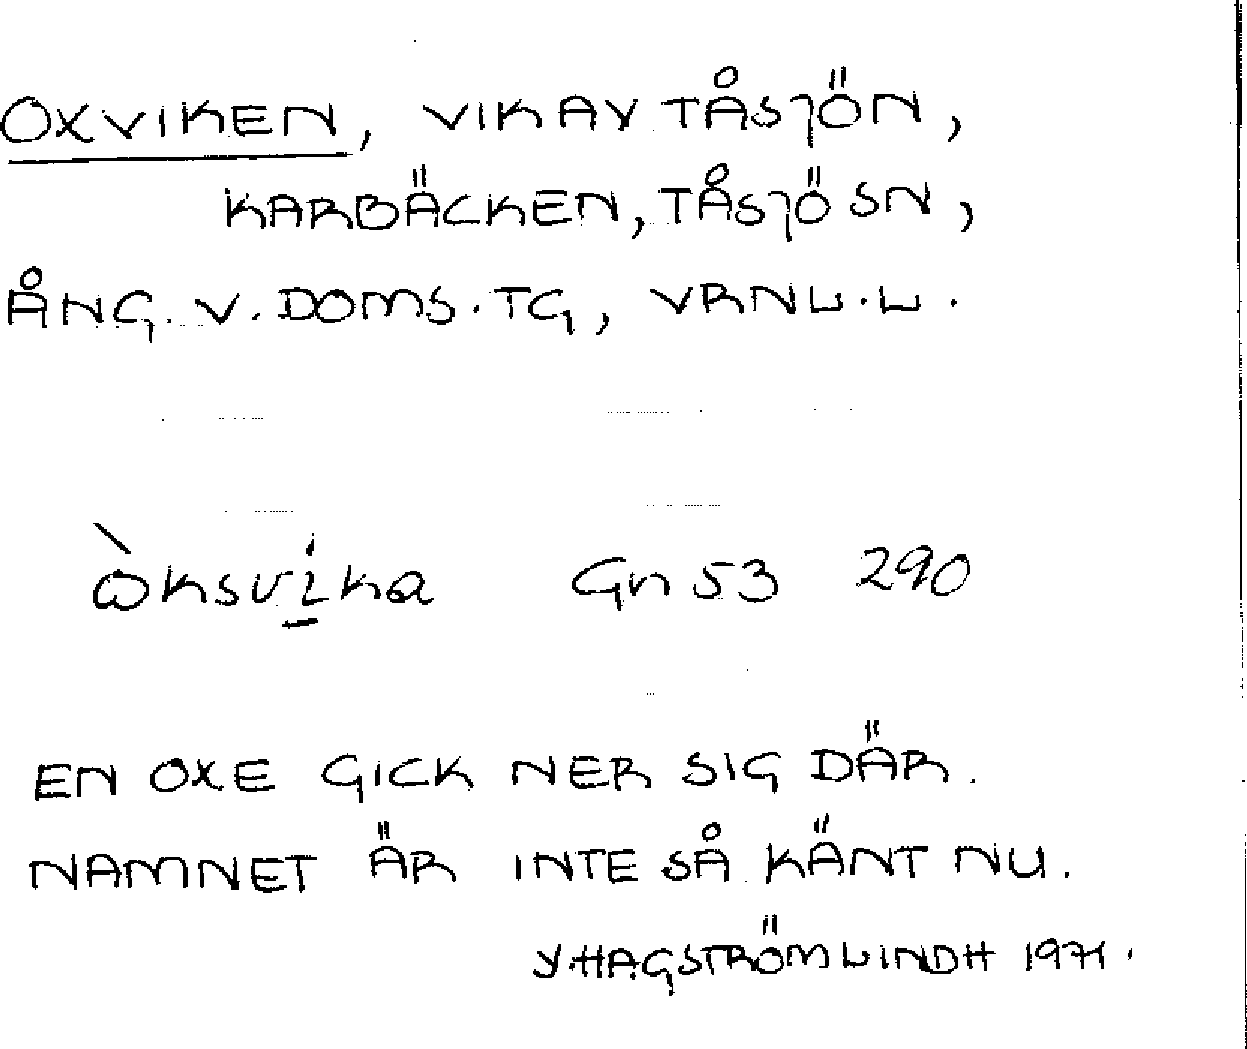 OXVIKEN, VIK AV TÅSJÖN,
KARBÄCKEN, TÅSJÖ SN,
ÅNG. V. DOMS. TG, VRNL. L.
ὼksvi̱ka Gn 53 290
EN OXE GICK NER SIG DÄR.
NAMNET ÄR INTE SÅ KÄNT NU.
Y. HAGSTRÖM LINDH 1971.